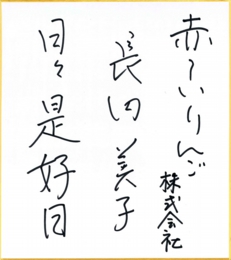 赤いりんご
株式会社
長田美子
日々是好日